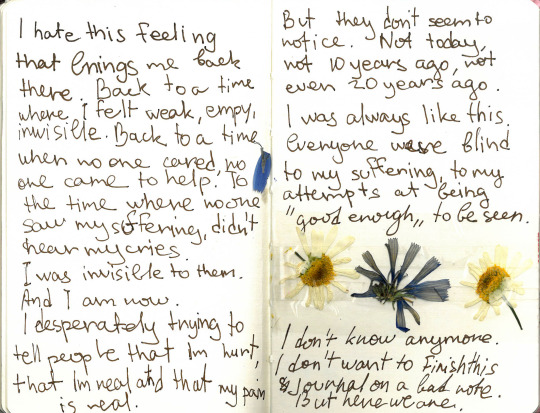 I hate this feeling
that brings me back
there. Back to a time
where I felt weak, empy,
invisible. Back to a time
when no one cared, no
one came to help. To
the time where no one
saw my suffering, didn't
hear my cries.
I was invisible to them.
And I am now.
I desperately trying to
tell people that Im hurt,
that Im real and that my pain
is real.
But they don't seem to
notice. Not today,
not 10 years ago, not
even 20 years ago.
I was always like this.
Everyone were blind
to my suffering, to my
attempts at being
"good enough„ to be seen.
I don't know anymore.
I don't want to finish this
journal on a bad note.
But here we are.